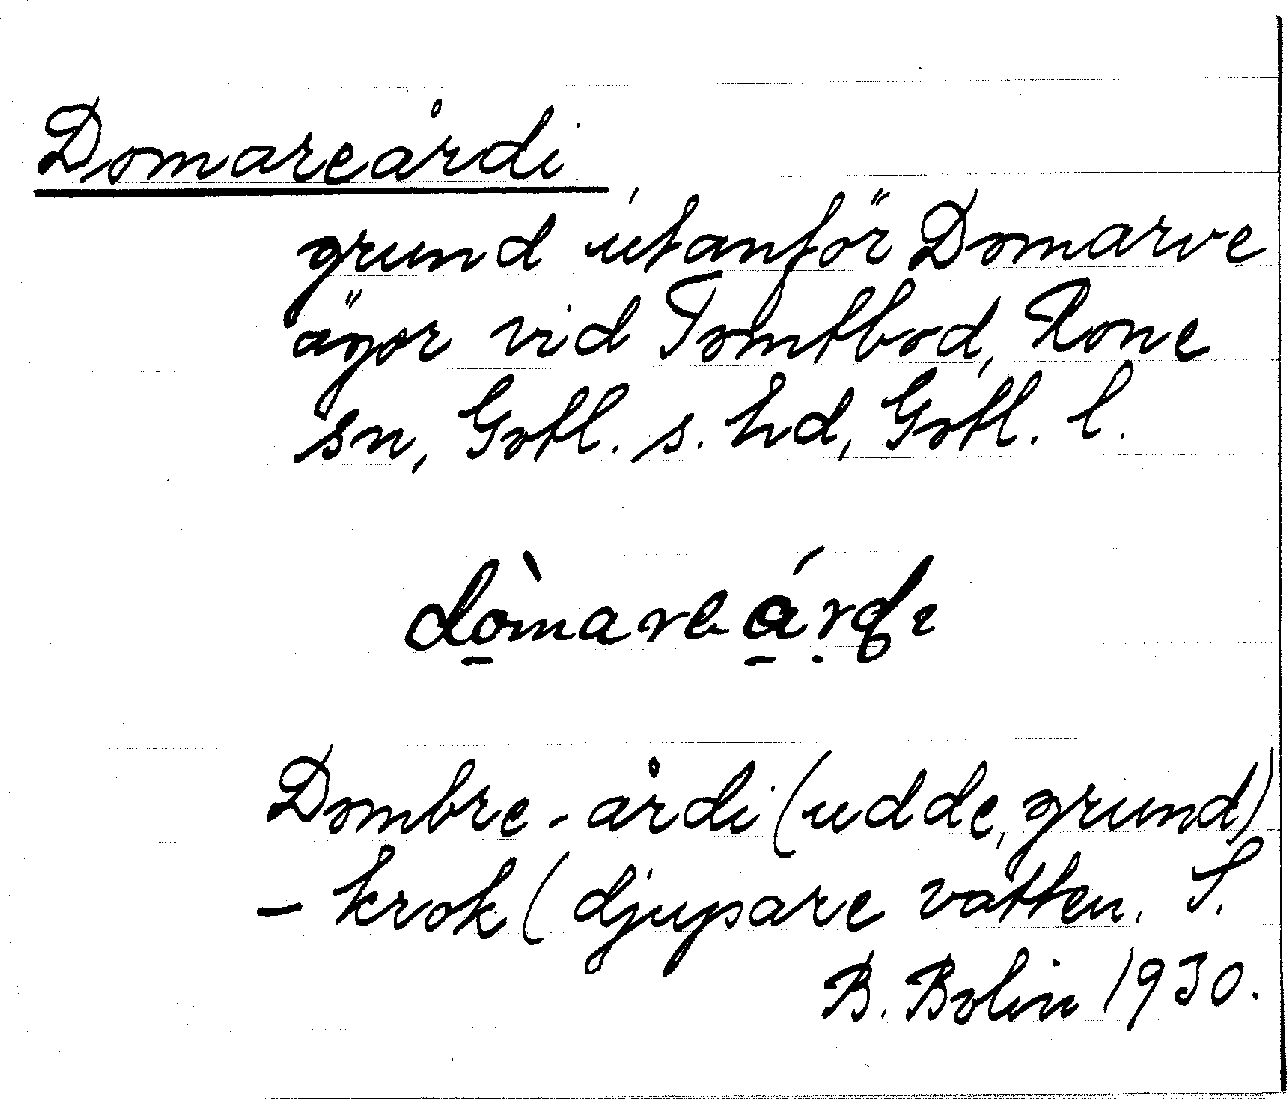 Domareårdi
grund utanför Domarve
ägor vid Tomtbod, Rone
sn, Gotl. s. hd, Gotl. l.
dò̱mare á̱rdi
Dombre-årdi (udde, grund)
- krok (djupare vatten. S.
B. Bolin 1930.